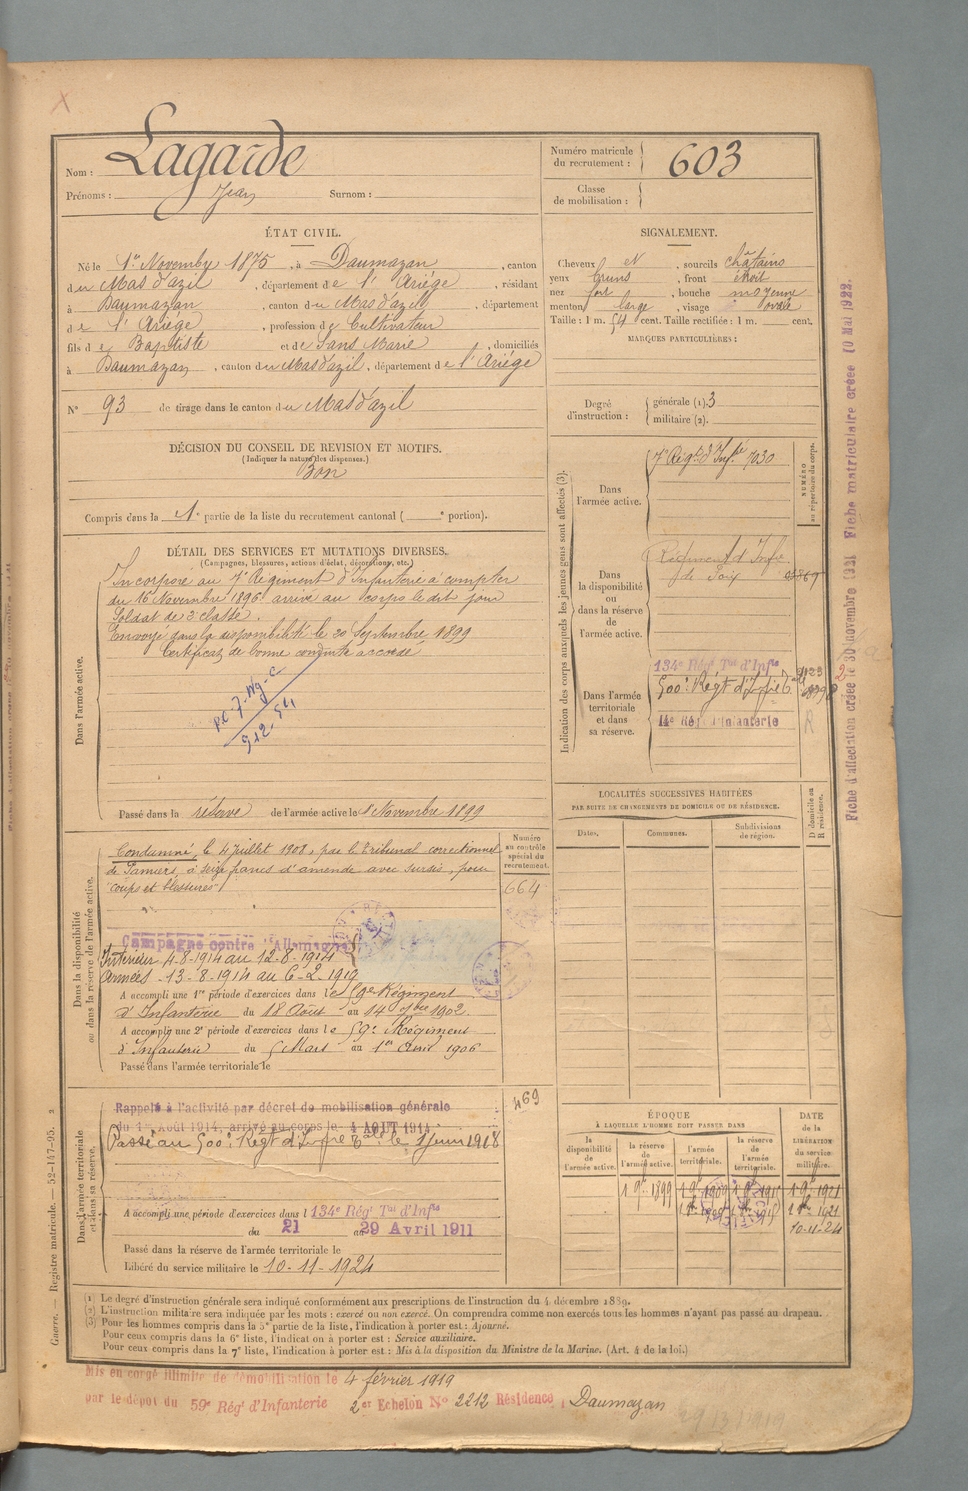 Nom : Lagarde
Prénoms : Jean Surnom :
Numéro matricule du recrutement : 603
Classe de mobilisation :
ÉTAT CIVIL.
Né le 1er Novembre 1875, à Daumazan, canton
du Mas d'azil, département de l'Ariége, résidant
à Daumazan, canton du Mas d'azil, département
de l'Ariége, profession de Cultivateur
fils de Baptiste et de Sans Marie, domiciliés
à Daumazan, canton du Mas d'azil, département de l'Ariége
N° 93 de tirage dans le canton du Mas d'azil
SIGNALEMENT.
Cheveux et, sourcils châtains
yeux bruns, front étroit
nez fort, bouche moyenne
menton large, visage ovale
Taille : 1 m. 54 cent. Taille rectifiée : 1 m. cent.
MARQUES PARTICULIÈRES :
Degré d'instruction : générale (1). 3
militaire (2).
DÉCISION DU CONSEIL DE REVISION ET MOTIFS.
(Indiquer la nature des dispenses.)
Bon
Compris dans la 1e partie de la liste du recrutement cantonal ( e portion).
DÉTAIL DES SERVICES ET MUTATIONS DIVERSES.
(Campagnes, blessures, actions d'éclat, décorations, etc.)
Dans l'armée active.
Incorporé au 7e Régiment d'Infanterie à compter
du 16 Novembre 1896 arrivé au corps le dit jour
Soldat de 2e classe.
Envoyé dans la disponibilité le 20 Septembre 1899
Certificat de bonne conduite accordé
Passé dans la réserve de l'armée active le 1 Novembre 1899
Indication des corps auxquels les jeunes gens sont affectés (3).
NUMÉRO au répertoire du corps.
Dans l'armée active.
7e Régt d'Infie 7030
Dans la disponibilité ou dans la réserve de l'armée active.
Régiment d'Infie
de Foix
Dans l'armée territoriale et dans sa réserve.
134e Régt Tal d'Infie
500e Régt d'Infie
14e Régt d'Infanterie
LOCALITÉS SUCCESSIVES HABITÉES
PAR SUITE DE CHANGEMENTS DE DOMICILE OU DE RÉSIDENCE.
Dates. Communes. Subdivisions de région. D domicile ou R résidence.
Dans la disponibilité ou dans la réserve de l'armée active.
Numéro au contrôle spécial du recrutement.
664
Condamné, le 4 Juillet 1908, par le Tribunal correctionnel
de Pamiers, à seize francs d'amende avec sursis, pour
"coups et blessures"
Campagne contre l'Allemagne
Intérieur 4-8-1914 au 12-8-1914
Armées - 13-8-1914 au 6-2-1919
A accompli une 1re période d'exercices dans le 59e Régiment
d'Infanterie du 18 Août au 14 7bre 1902
A accompli une 2e période d'exercices dans le 59e Régiment
d'Infanterie du 5 Mars au 1er Avril 1906
Passé dans l'armée territoriale le
Dans l'armée territoriale et dans sa réserve.
469
Rappelé à l'activité par décret de mobilisation générale
du 1er Août 1914, arrivé au corps le 4 AOUT 1914
Passé au 500e Régt d'Infie Tale le 1 Juin 1918
A accompli une période d'exercices dans l 134e Régt Tal d'Infie
du 21 au 29 Avril 1911
Passé dans la réserve de l'armée territoriale le
Libéré du service militaire le 10-11-1924
ÉPOQUE
À LAQUELLE L'HOMME DOIT PASSER DANS
la disponibilité de l'armée active. la réserve de l'armée active. l'armée territoriale. la réserve de l'armée territoriale.
DATE de la LIBÉRATION du service militaire.
1 9bre 1899
10-11-24
(1) Le degré d'instruction générale sera indiqué conformément aux prescriptions de l'instruction du 4 décembre 1889.
(2) L'instruction militaire sera indiquée par les mots : exercé ou non exercé. On comprendra comme non exercés tous les hommes n'ayant pas passé au drapeau.
(3) Pour les hommes compris dans la 5e partie de la liste, l'indication à porter est : Ajourné.
Pour ceux compris dans la 6e liste, l'indication à porter est : Service auxiliaire.
Pour ceux compris dans la 7e liste, l'indication à porter est : Mis à la disposition du Ministre de la Marine. (Art. 4 de la loi.)
Mis en congé illimité de démobilisation le 4 février 1919
par le dépôt du 59e Régt d'Infanterie 2er Echelon N° 2212 Résidence : Daumazan
Guerre. — Registre matricule. — 52-147-95.
Fiche d'affectation créée le 30 novembre 1921 Fiche matriculaire créée 10 Mai 1922.